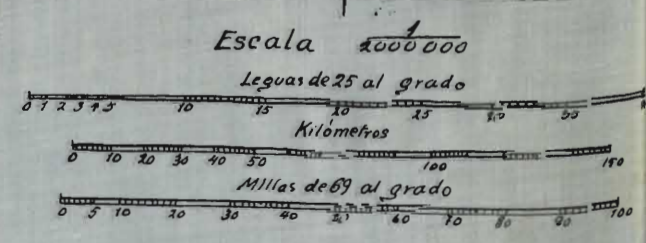 Escala 1/2000000
Leguas de 25 al grado
0 1 2 3 4 5 10 15 20 25 30 35
Kilómetros
0 10 20 30 40 50 100 150
Millas de 69 al grado
0 5 10 20 30 40 50 60 70 80 90 100